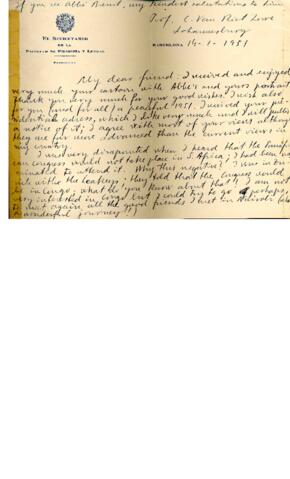 If you see Abbé Breuil, my kindest salutations to him.
Prof. C. Van Riet Lowe
Johannesburg
EL SECRETARIO
DE LA
FACULTAD DE FILOSOFÍA Y LETRAS
BARCELONA 14-1-1951
PARTICULAR
My dear friend: I received and enjoyed
very much your cartoon with Abbé's and yours portrait
Thank you very much for your good wishes. I wish also
for you (and for all) a peaceful 1951. I received your pre-
sidential adress, which I like very much and I will publish
a notice of it; I agree with most of your views although
they are far more advanced than the current views in
my country.
I was very disapointed when I heard that the Panafri-
can congress would not take place in S. Africa; I had been no-
minated to attend it. Why this negative? I was in
with the Leakeys; they told that the congress would
be in Congo; what do you know about that? I am not
very interested in Congo but I would try to go perhaps,
to meet again all the good friends I met in Nairobi (also
a wonderful journey!)